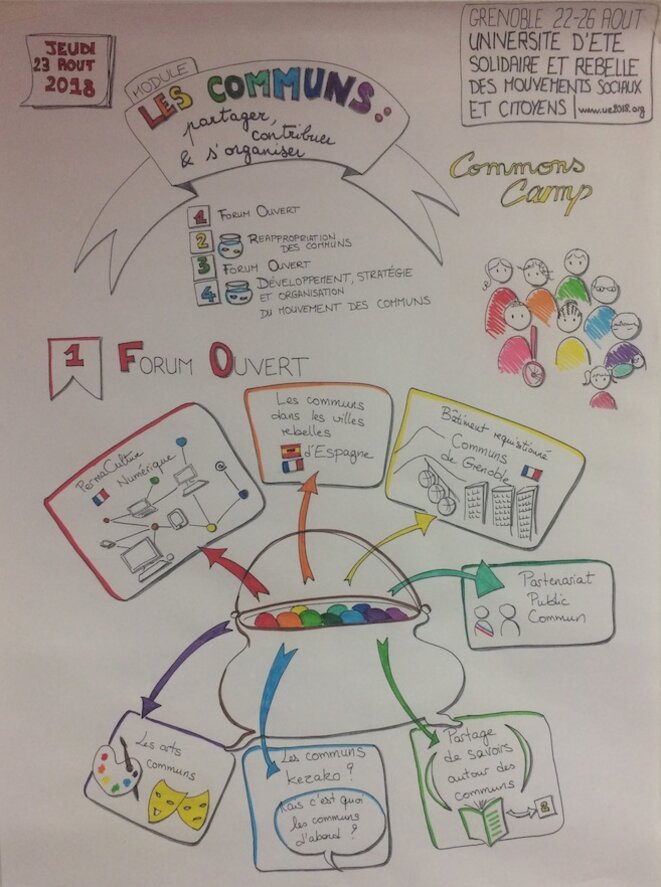 JEUDI
23 AOUT
2018
GRENOBLE 22-26 AOUT
UNIVERSITE D'ETE
SOLIDAIRE ET REBELLE
DES MOUVEMENTS SOCIAUX
ET CITOYENS | www.ue2018.org
MODULE
LES COMMUNS:
partager,
contribuer
& s'organiser
Commons
Camp
1 FORUM OUVERT
2 REAPPROPRIATION
DES COMMUNS
3 FORUM OUVERT
4 DÉVELOPPEMENT, STRATÉGIE
ET ORGANISATION
DU MOUVEMENT DES COMMUNS
1 FORUM OUVERT
PermaCulture
Numérique
Les communs
dans les villes
rebelles
d'Espagne
Bâtiment requisitionné
Communs
de Grenoble
Partenariat
Public
Commun
Les arts
communs
Les communs
kezako ?
Mais c'est quoi
les communs
d'abord ?
Partage
de savoirs
autour des
communs
2